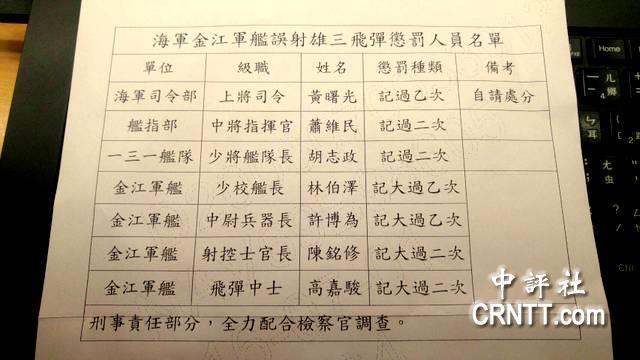 海軍金江軍艦誤射雄三飛彈懲罰人員名單
單位 級職 姓名 懲罰種類 備考
海軍司令部 上將司令 黃曙光 記過乙次 自請處分
艦指部 中將指揮官 蕭維民 記過二次
一三一艦隊 少將艦隊長 胡志政 記過二次
金江軍艦 少校艦長 林伯澤 記大過乙次
金江軍艦 中尉兵器長 許博為 記大過乙次
金江軍艦 射控士官長 陳銘修 記大過二次
金江軍艦 飛彈中士 高嘉駿 記大過二次
刑事責任部分，全力配合檢察官調查。
中評社
CRNTT.com
Home
Ctrl